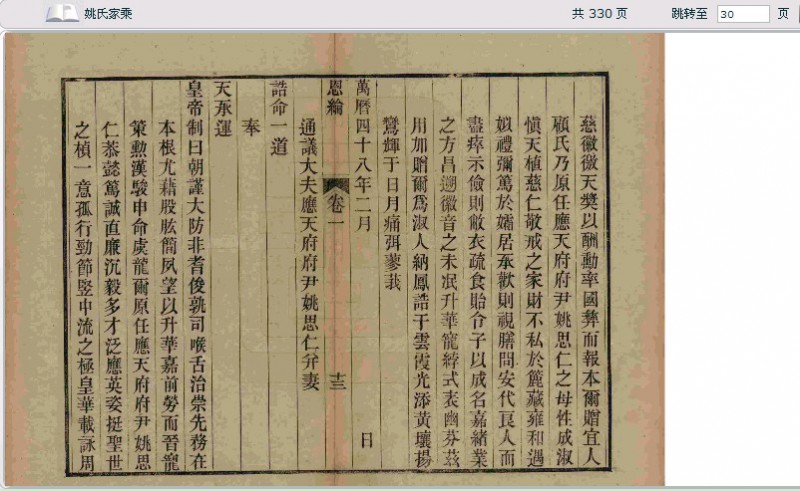 姚氏家乘
共 330 页
跳转至 30 页
慈徽徼天獎以酬勳率國彝而報本爾贈宜人
顧氏乃原任應天府府尹姚思仁之母性成淑
慎天植慈仁敬戒之家財不私於篋藏雍和遇
姒禮彌篤於孀居承歡則視膳問安代良人而
盡瘁示儉則敝衣疏食貽令子以成名嘉緒業
之方昌遡徽音之未泯升華寵綍式表幽芬茲
用加贈爾爲淑人納鳳誥于雲霞光添黃壤揚
鸞輝于日月痛弭蓼莪
萬曆四十八年二月 日
恩綸 卷一 十三
通議大夫應天府府尹姚思仁并妻
誥命一道
奉
天承運
皇帝制曰朝謹大防非耆俊孰司喉舌治崇先務在
本根尤藉股肱簡夙望以升華嘉前勞而晉寵
策勳漢駿申命虞龍爾原任應天府府尹姚思
仁恭懿篤誠直廉沉毅多才泛應英姿挺聖世
之楨一意孤行勁節豎中流之極皇華載詠周